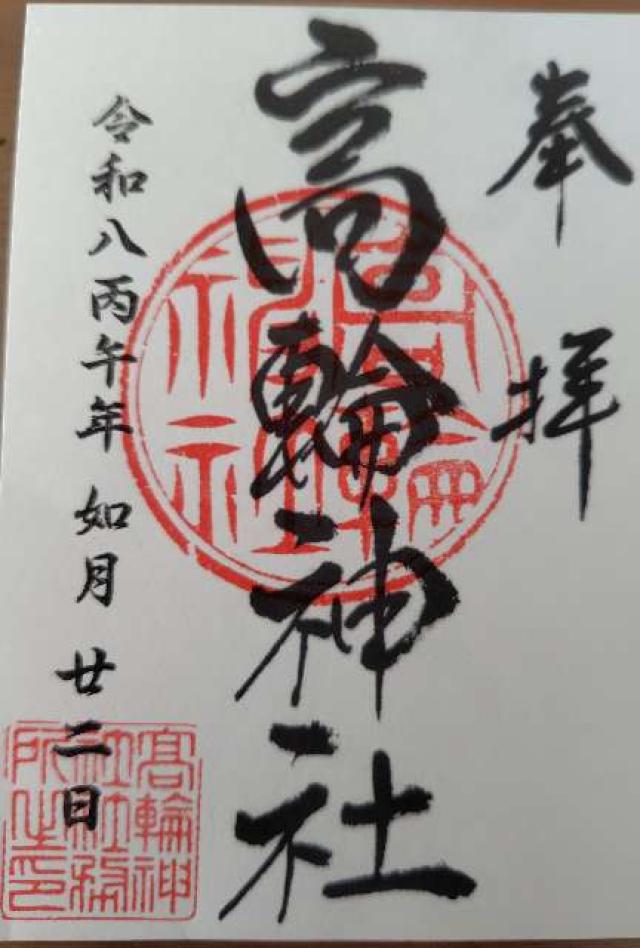 奉拝
高輪神社
令和八丙午年 如月 廿二日
高輪神社
高輪神社社務所之印